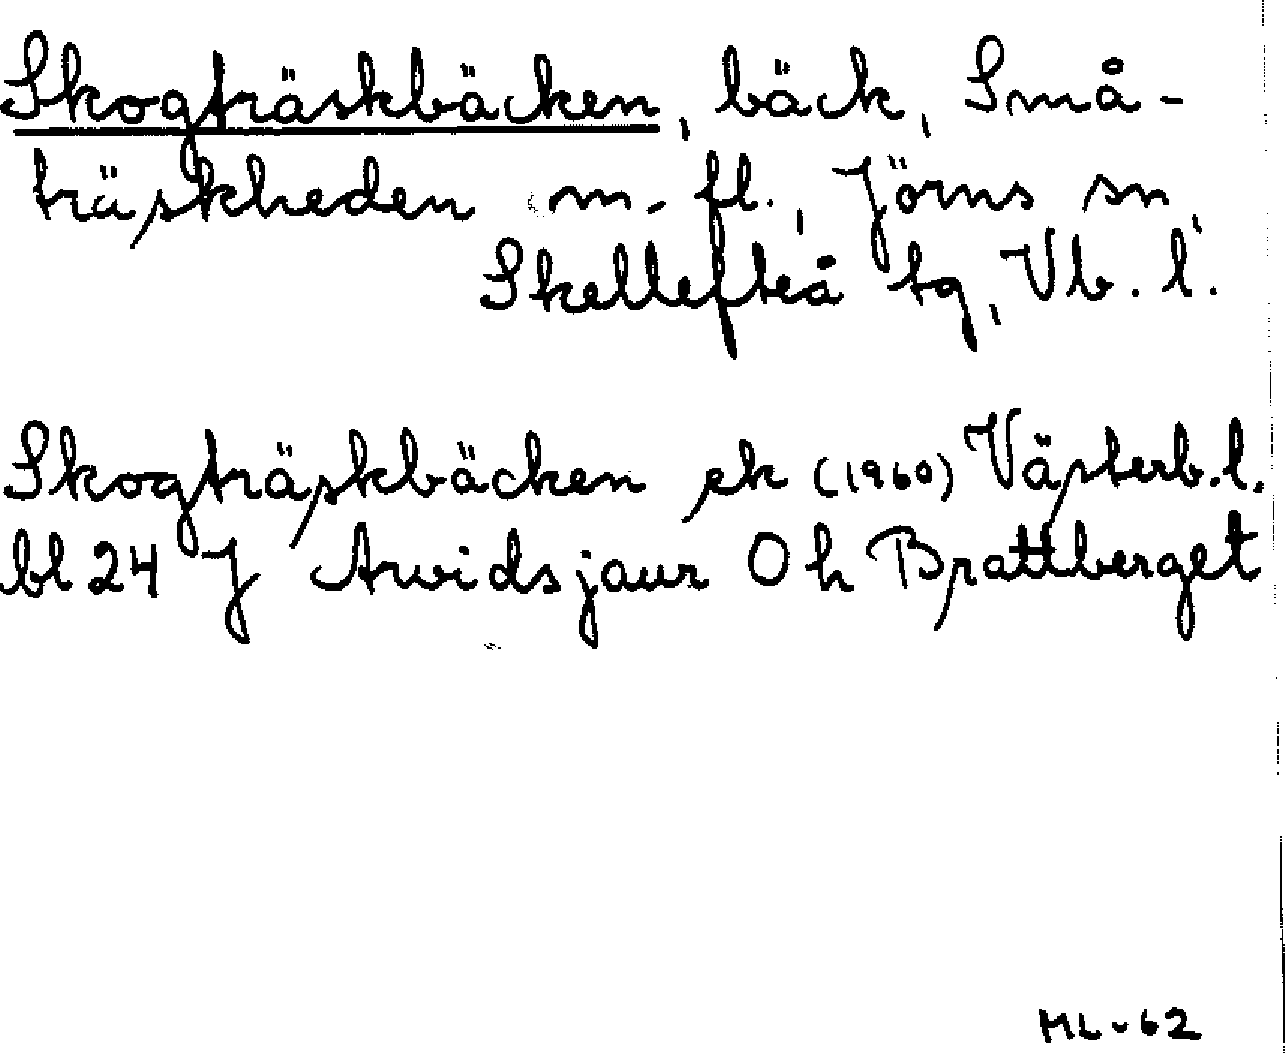 Skogträskbäcken, bäck, Små-
träskheden m. fl., Jörns sn,
Skellefteå tg, Vb. l.
Skogträskbäcken ek (1960) Västerb.l.
bl 24 J Arvidsjaur Oh Brattberget
ML-62